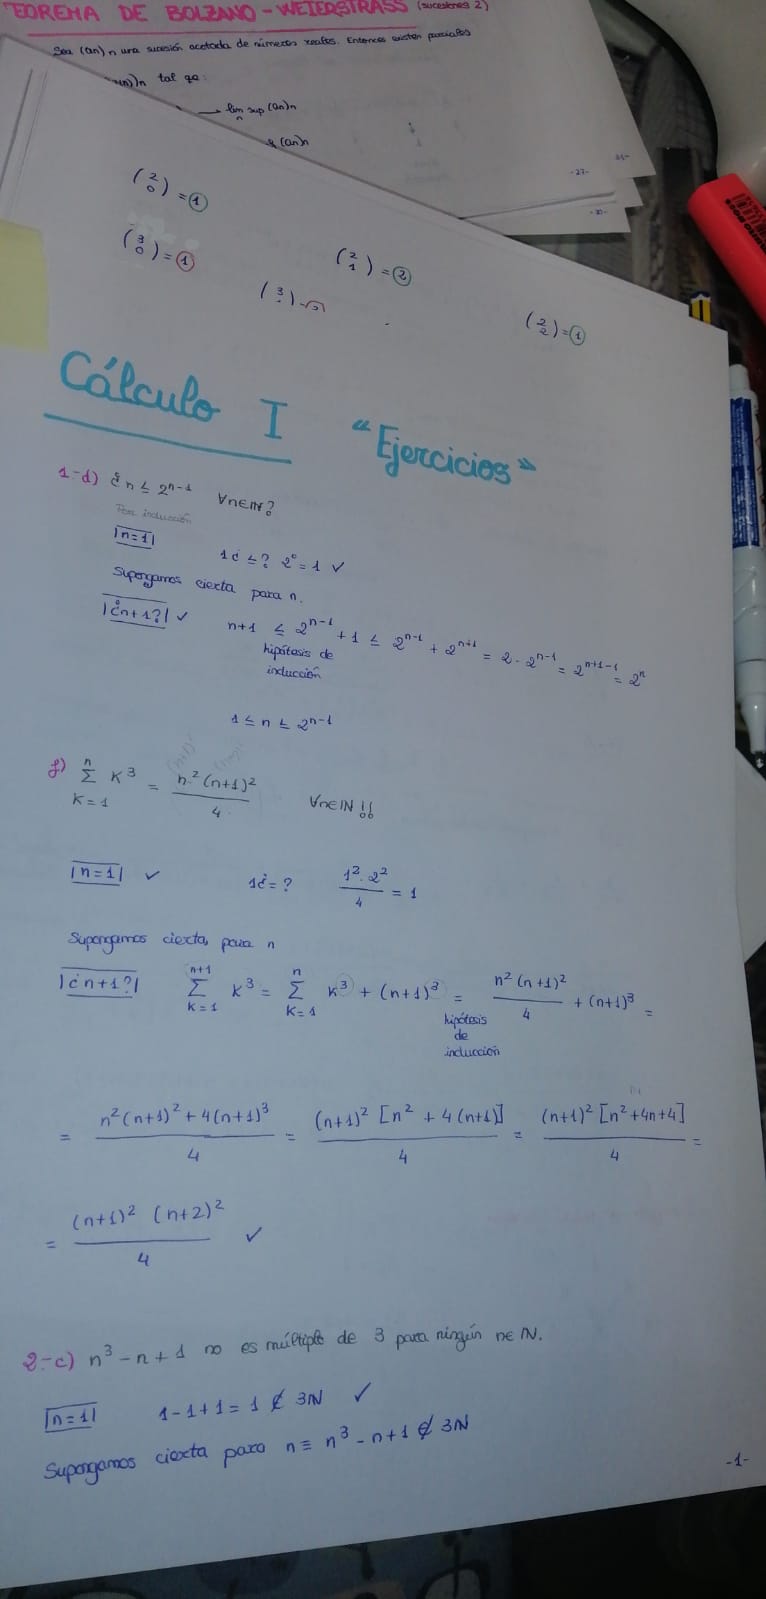 TEOREMA DE BOLZANO-WEIERSTRASS (sucesiones 2)
Sea (an)n una sucesión acotada de números reales. Entonces existen parciales
tal qe:
→ lim sup (an)n
n
(an)n
-27-
(2 0) = 1
(3 0) = 1
(2 1) = 2
(3
(2 2) = 1
Cálculo I "Ejercicios"
1-d) ¿n ≤ 2^{n-1} ∀n∈ℕ?
Por inducción
|n=1| 1 ¿≤? 2^0 = 1 ✓
Supongamos cierta para n.
|¿n+1?| ✓ n+1 ≤ 2^{n-1} + 1 ≤ 2^{n-1} + 2^{n+1} = 2·2^{n-1} = 2^{n+1-1} = 2^n
hipótesis de
inducción
1 ≤ n ≤ 2^{n-1}
f) \sum_{K=1}^{n} K^3 = \frac{n^2(n+1)^2}{4} ∀n∈ℕ!!
|n=1| ✓ 1¿=? \frac{1^2·2^2}{4} = 1
Supongamos cierta, para n
|¿n+1?| \sum_{K=1}^{n+1} K^3 = \sum_{K=1}^{n} K^3 + (n+1)^3 = \frac{n^2(n+1)^2}{4} + (n+1)^3 =
hipótesis
de
inducción
= \frac{n^2(n+1)^2 + 4(n+1)^3}{4} = \frac{(n+1)^2 [n^2 + 4(n+1)]}{4} = \frac{(n+1)^2 [n^2+4n+4]}{4} =
= \frac{(n+1)^2 (n+2)^2}{4} ✓
2-c) n^3 - n + 1 no es múltiplo de 3 para ningún n∈ℕ.
|n=1| 1-1+1 = 1 ∉ 3ℕ ✓
Supongamos cierta para n ≡ n^3 - n + 1 ∉ 3ℕ
-1-